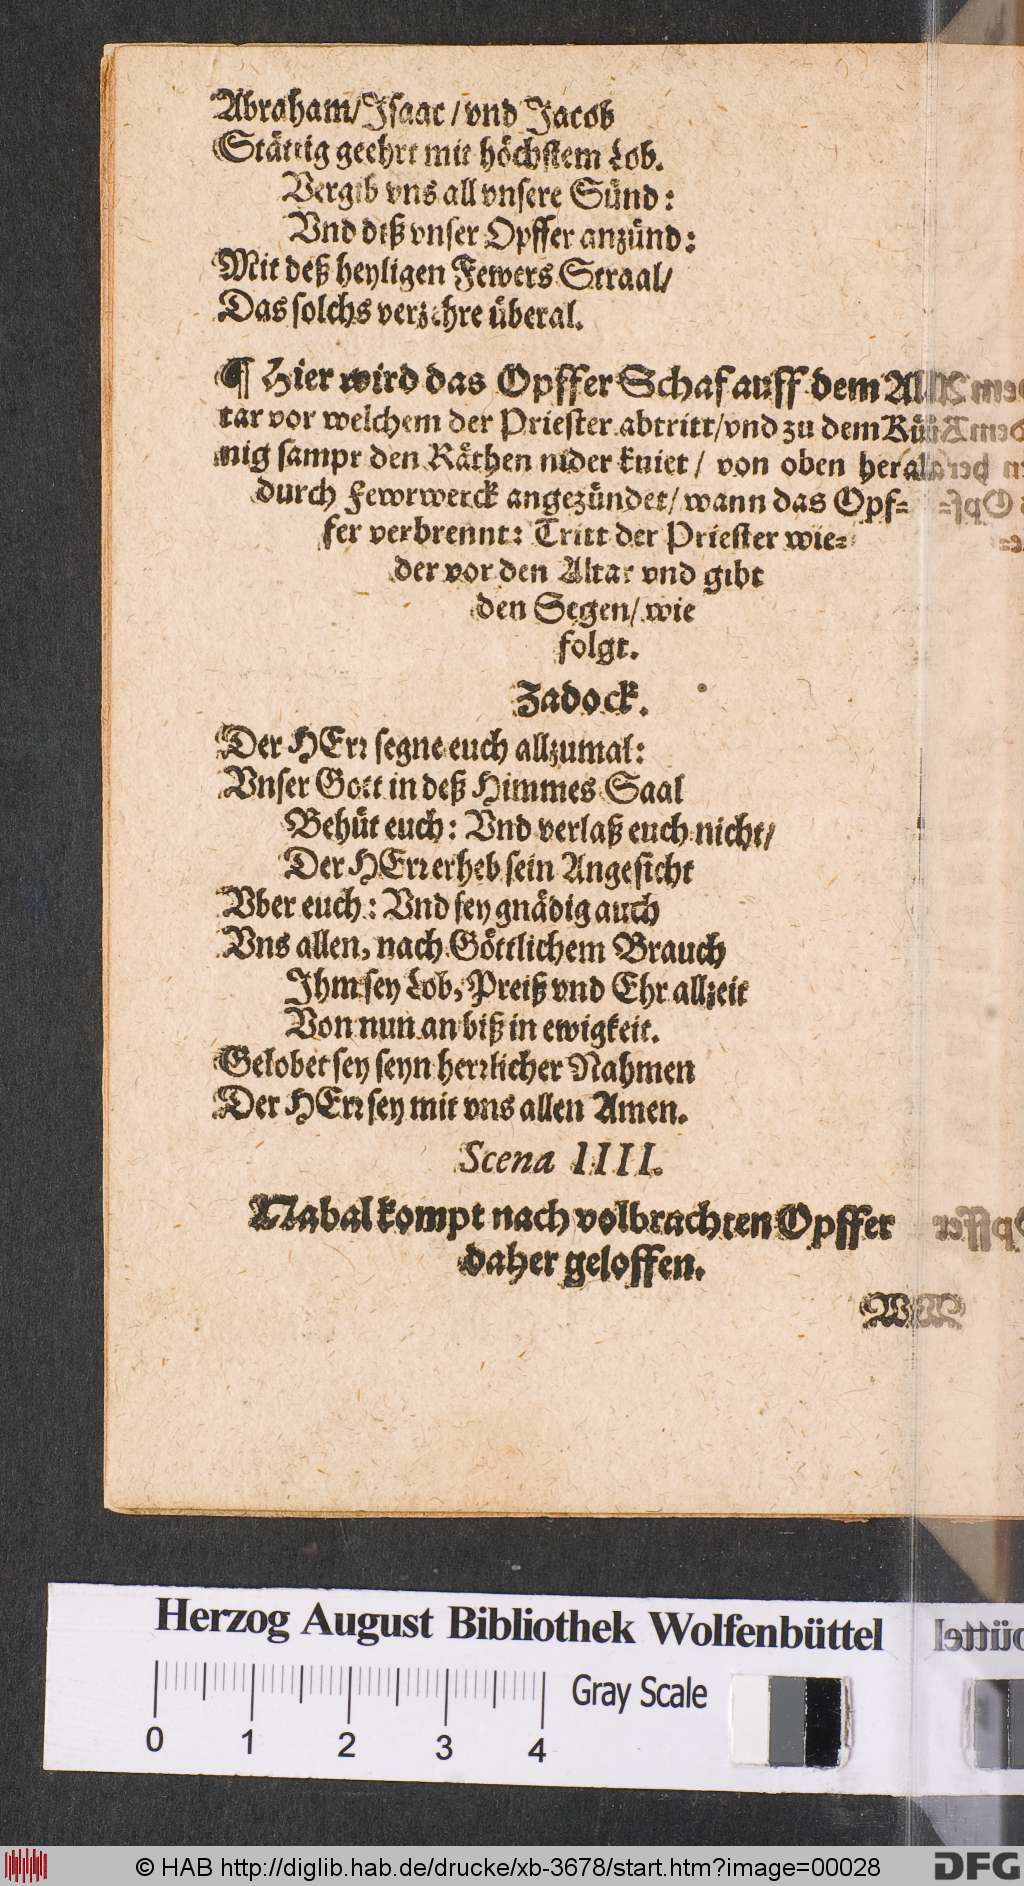 Abraham/ Isaac / vnd Jacob
Stättig geehrt mit höchstem Lob.
Vergib vns all vnsere Sünd:
Vnd diß vnser Opffer anzünd:
Mit deß heyligen Fewers Straal/
Das solchs verzehre überal.
¶ Hier wird das Opffer Schaf auff dem Al
tar vor welchem der Priester abtritt/ vnd zu dem Kü
nig sampt den Räthen nider kniet / von oben herab
durch Fewrwerck angezündet/ wann das Opf=
fer verbrennt: Tritt der Priester wie=
der vor den Altar vnd gibt
den Segen/ wie
folgt.
Zadock.
Der HErr segne euch allzumal:
Vnser Gott in deß Himmes Saal
Behüt euch: Vnd verlaß euch nicht/
Der HErr erheb sein Angesicht
Vber euch: Vnd sey gnädig auch
Vns allen, nach Göttlichem Brauch
Ihm sey Lob, Preiß vnd Ehr allzeit
Von nun an biß in ewigkeit.
Gelobet sey seyn herrlicher Nahmen
Der HErr sey mit vns allen Amen.
Scena IIII.
Nabal kompt nach volbrachten Opffer
daher geloffen.
Herzog August Bibliothek Wolfenbüttel
0 1 2 3 4 Gray Scale
© HAB http://diglib.hab.de/drucke/xb-3678/start.htm?image=00028 DFG